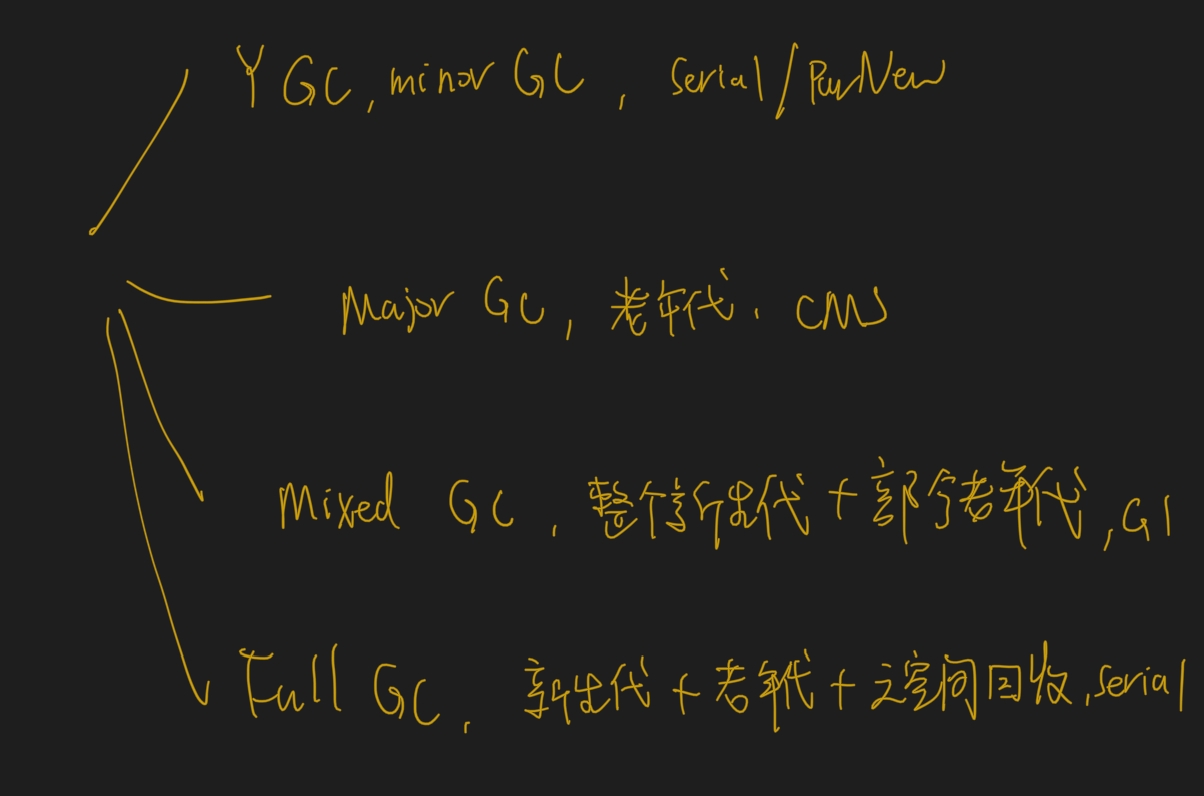 YGC, minor GC, serial/ParNew
Major GC, 老年代. CMS
Mixed GC, 整个新生代+部分老年代, G1
Full GC, 新生代+老年代+元空间回收, serial